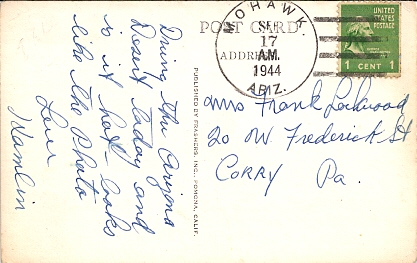 POST CARD
ADDRE
MOHAWK
SEP
17
AM.
1944
ARIZ.
UNITED STATES
POSTAGE
1 CENT 1
Driving the Arizona
Desert today and
is it hot - looks
like the Photo
Love
Hamlin
PUBLISHED BY FRASHERS, INC., POMONA, CALIF.
Mrs Frank Lockwood
20 W. Frederick St
CORRY Pa.